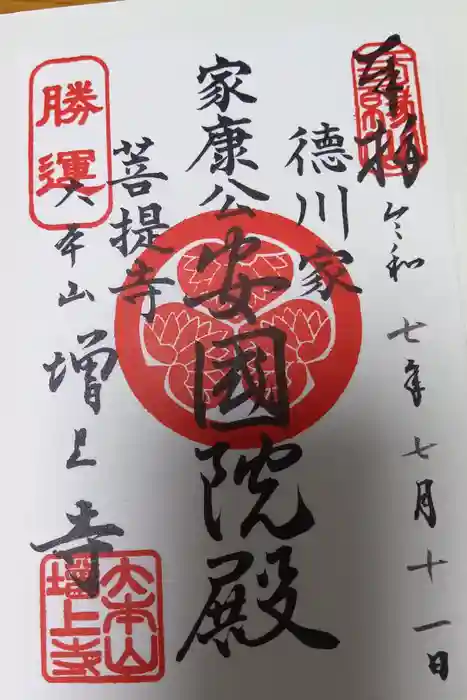 奉拝
令和七年七月十一日
徳川家
家康公
安國院殿
菩提寺
勝運
大本山
増上寺
大本山
増上寺